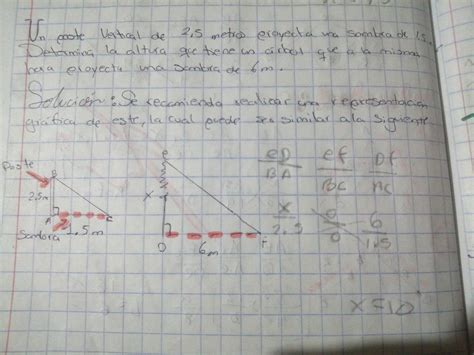 Un poste Vertical de 2.5 metros proyecta una sombra de 1.5.
Determina la altura que tiene un árbol que a la misma
hora proyecta una sombra de 6m.
Solución: Se recomienda realizar una representación
gráfica de este, la cual puede ser similar a la siguiente
Poste
B
2.5m
A
C
Sombra
1.5m
e
x
D
6m
F
eD ef Df
BA BC AC
x 0 6
2.5 0 1.5
x=10